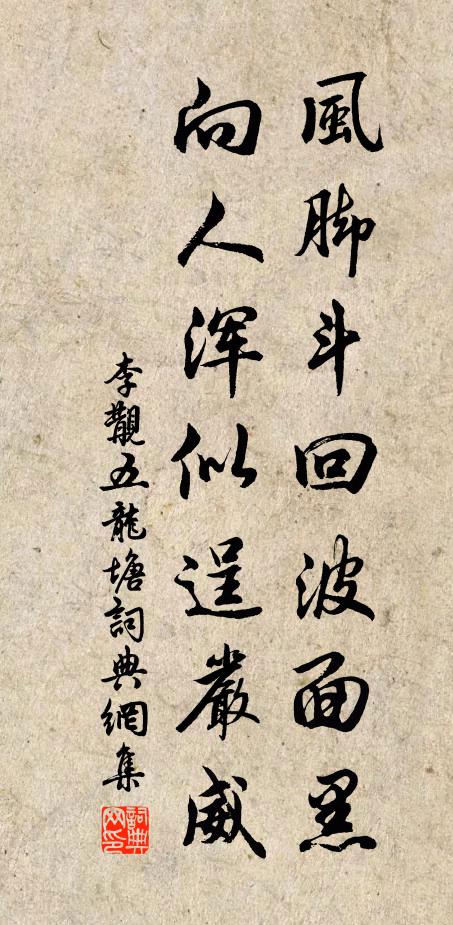 風脚斗回波面黑
向人浑似逞嚴威
李觀五龍塘詞典網集
詞典网印